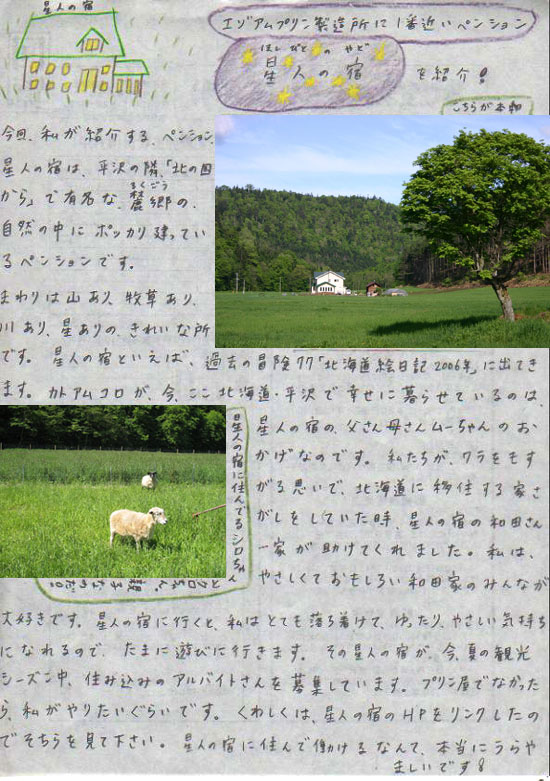 星人の宿
エゾアムプリン製造所に1番近いペンション
ほしびとのやど
星人の宿 を紹介!
こちらが本物
今回、私が紹介する、ペンション
星人の宿は、平沢の隣、「北の国
ろくごう
から」で有名な、麓郷の、
自然の中にポッカリ建ってい
るペンションです。
まわりは山あり、牧草あり、
川あり、星ありの、きれいな所
です。星人の宿といえば、過去の冒険77「北海道絵日記2006年」に出てき
ます。カトアムコロが、今、ここ北海道・平沢で幸せに暮らせているのは、
星人の宿の、父さん母さんムーちゃんのお
かげなのです。私たちが、ワラをもす
がる思いで、北海道に移住する家さ
がしをしていた時、星人の宿の和田さん
一家が助けてくれました。私は、
やさしくておもしろい和田家のみんなが
星人の宿に住んでるシロちゃん
とクロちゃん。親子なのだ。
大好きです。星人の宿に行くと、私はとても落ち着けて、ゆったり、やさしい気持ち
になれるので、たまに遊びに行きます。その星人の宿が、今、夏の観光
シーズン中、住み込みのアルバイトさんを募集しています。プリン屋でなかった
ら、私がやりたいぐらいです。くわしくは、星人の宿のHPをリンクしたの
でそちらを見て下さい。星人の宿に住んで働けるなんて、本当にうらや
ましいです!